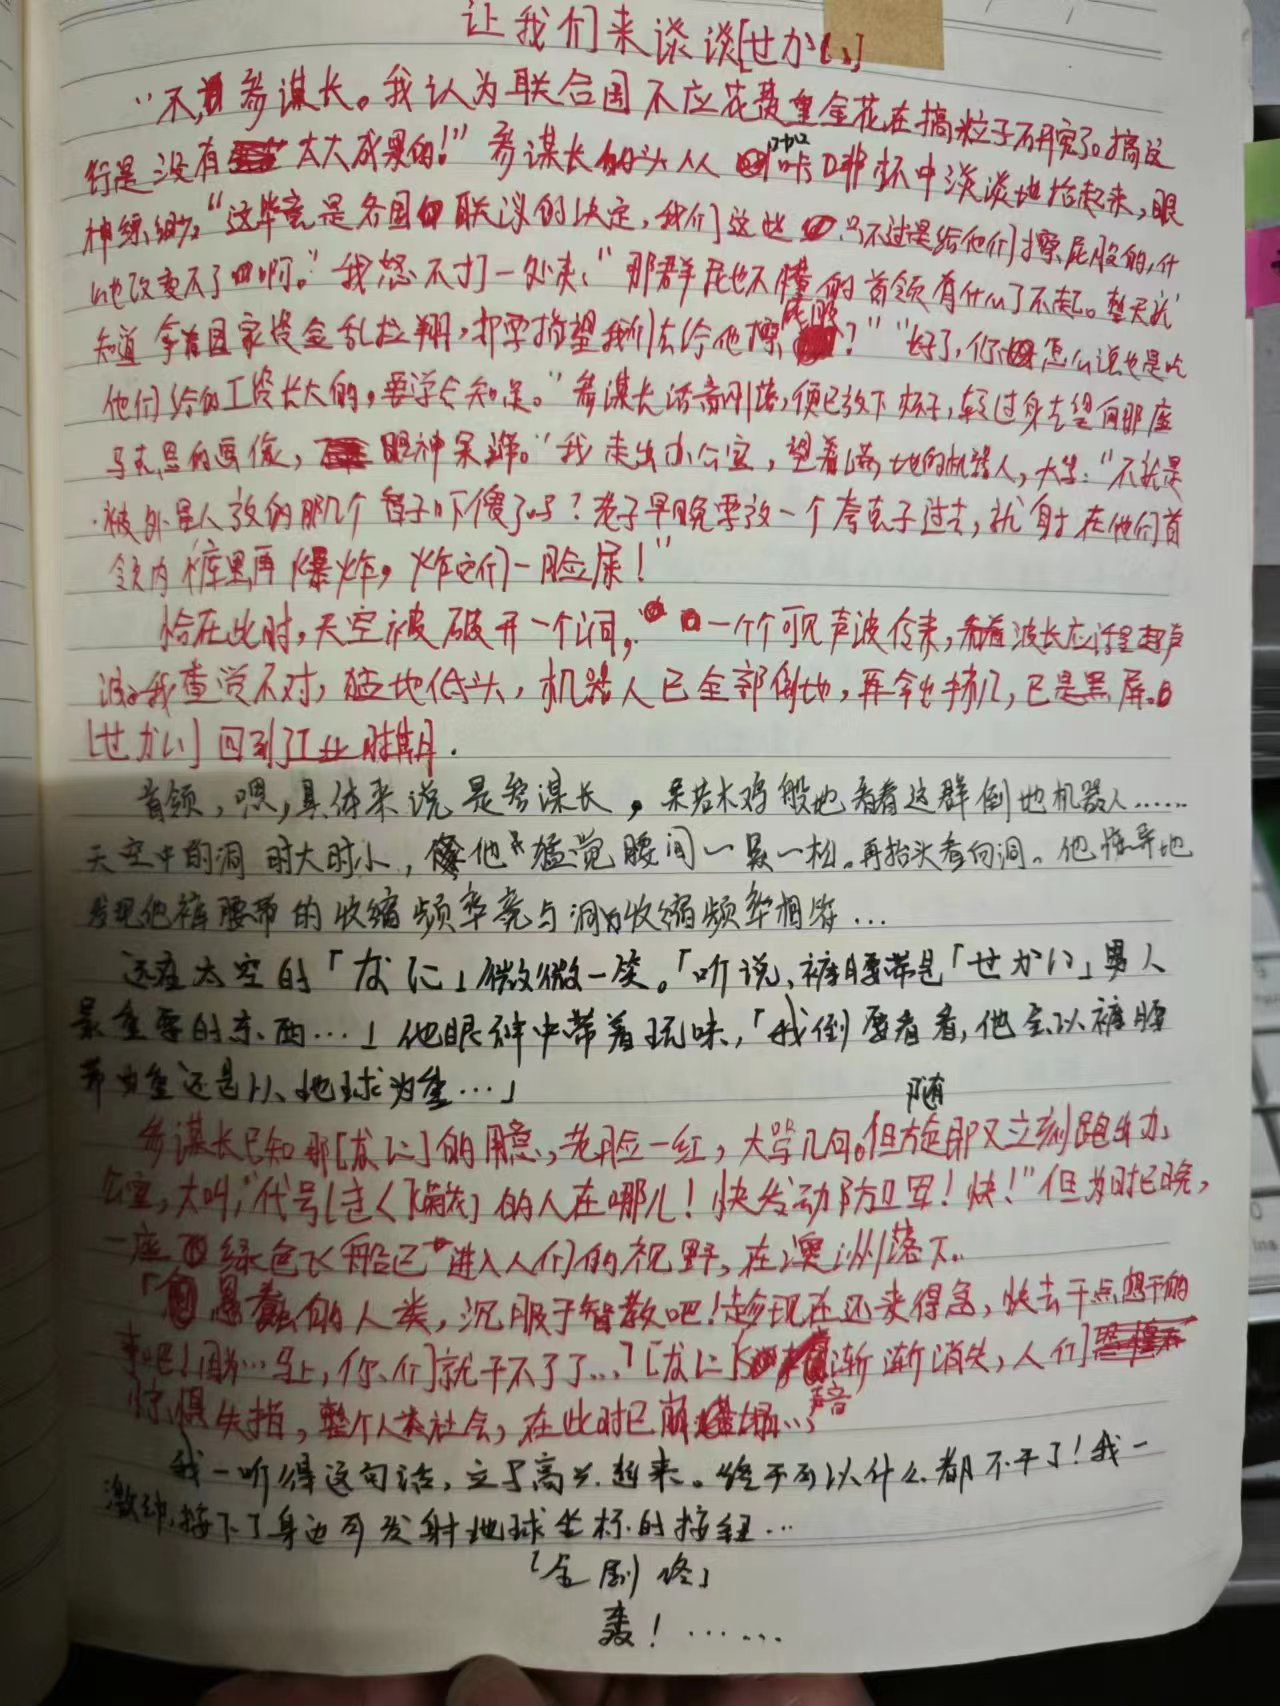 让我们来谈谈[せかい]
"不,参谋长。我认为联合国不应花费重金花在搞粒子研究了。搞这
行是没有太大成果的!"参谋长的头从咖啡杯中淡淡地抬起来,眼
神."这毕竟是各国联议的决定,我们这些只不过是给他们擦屁股的,什
么也改变不了啊。"我怒不打一处来,"那群屁也不懂的首领有什么了不起。整天就
知道拿着国家资金乱拉翔,都要指望我们去给他擦屁股?""好了,你怎么说也是吃
他们给的工资长大的,要学会知足。"参谋长话音刚落,便已放下杯子,转过身去望向那座
马克思的画像,眼神呆滞。"我走出办公室,望着满地的机器人,大笑:"不就是
被外星人放的那几个智子吓傻了吗?老子早晚要放一个夸克子过去,就射在他们首
领内裤里再爆炸,炸它们一脸屎!"
恰在此时,天空被破开一个洞,一个个可见声波传来,看着波长应该是超声
波。我查觉不对,猛地低头,机器人已全部倒地,再拿出手机,已是黑屏。
[せかい]回到了工业时期.
首领,嗯,具体来说是参谋长,呆若木鸡般地看着这群倒地机器人……
天空中的洞时大时小,他猛觉腰间一紧一松。再抬头看向洞。他惊异地
发现他裤腰带的收缩频率竟与洞的收缩频率相当…
远在太空的「なに」微微一笑。「听说,裤腰带是「せかい」男人
最重要的东西…」他眼神中带着玩味,「我倒要看看,他会以裤腰
带为重还是以地球为重…」
参谋长已知那[なに]的用意,老脸一红,大骂几句。但随即又立刻跑出办
公室,大叫,"代号的人在哪儿!快发动防卫军!快!"但为时已晚,
一座绿色飞船已进入人们的视野,在澳洲落下..
「愚蠢的人类,沉服于智教吧!趁现在还来得急,快去干点想干的
事吧!因为…马上,你们就干不了了…」[なに]声音渐渐消失,人们
惊惧失措,整个人类社会,在此时已崩塌…
我一听得这句话,立了高兴起来。终于可以什么都不干了!我一
激动,按下了身边可发射地球坐标的按钮…
「全剧终」
轰!……